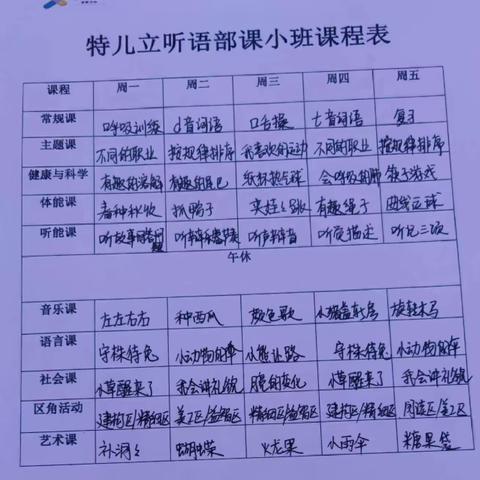 特儿立听语部课小班课程表
课程 周一 周二 周三 周四 周五
常规课 呼吸训练 d音词语 口舌操 t音词语 复习
主题课 不同的职业 按规律排序 我喜欢的运动 不同的职业 按规律排序
健康与科学 有趣的溶解 有趣的尾巴 纸杯热气球 会呼吸的肺 筷子游戏
体能课 春种秋收 抓鸭子 有趣绳子 曲线运球
听能课 听故事回答问题 听声音 听觉描述 听见三项
午休
音乐课 左左右右 种西瓜 颜色歌 旋转木马
语言课 守株待兔 小动物的伞 小熊让路 守株待兔 小动物的伞
社会课 小草醒来了 我会讲礼貌 脸的变化 小草醒来了 我会讲礼貌
区角活动 建构区/精细区 美工区/益智区 精细区/益智区 建构区/精细区 阅读区/美工区
艺术课 补洞洞 蝴蝶 火龙果 小雨伞 糖果